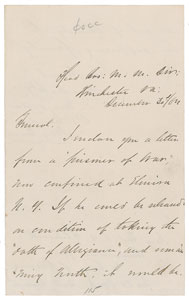 Head Qrs: M. M. Div:
Winchester Va.
December 20/64
General.
I enclose you a letter
from a "prisoner of War"
now confined at Elmira
N. Y. If he could be released
on condition of taking the
"oath of Allegiance", and remain
North. he would be